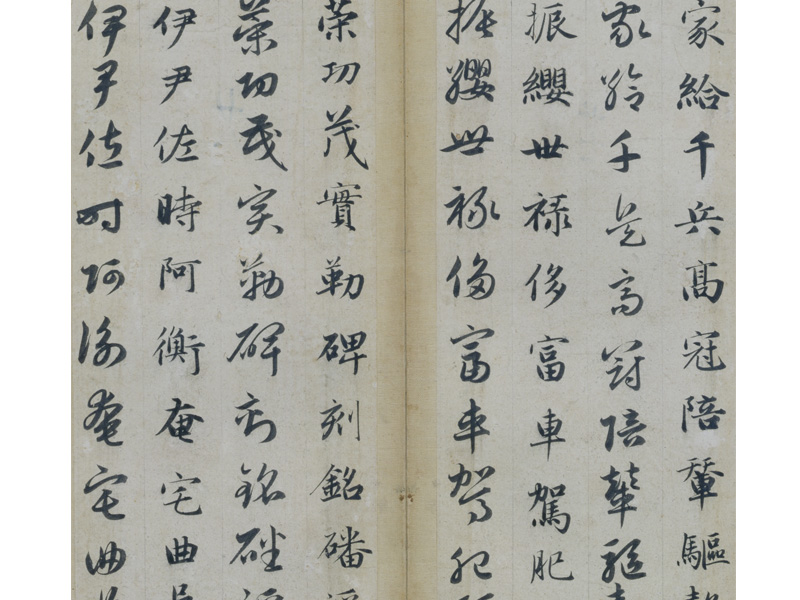 家給千兵髙冠陪輦驅
家給千兵高冠陪輦驅
振纓世禄侈富車駕肥
振纓世禄侈富車駕肥
榮功茂實勒碑刻銘磻
榮功茂實勒碑刻銘磻
伊尹佐時阿衡奄宅曲
伊尹佐時阿衡奄宅曲